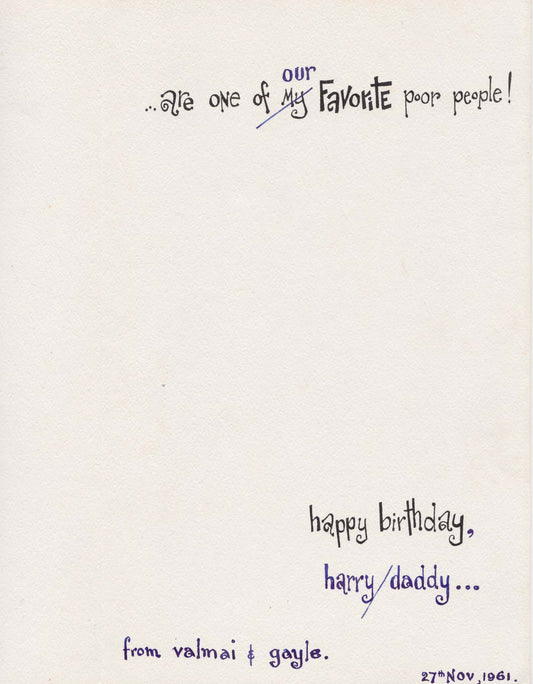 our
...are one of My Favorite poor people!
happy birthday,
harry/daddy...
from valmai & gayle.
27th Nov, 1961.